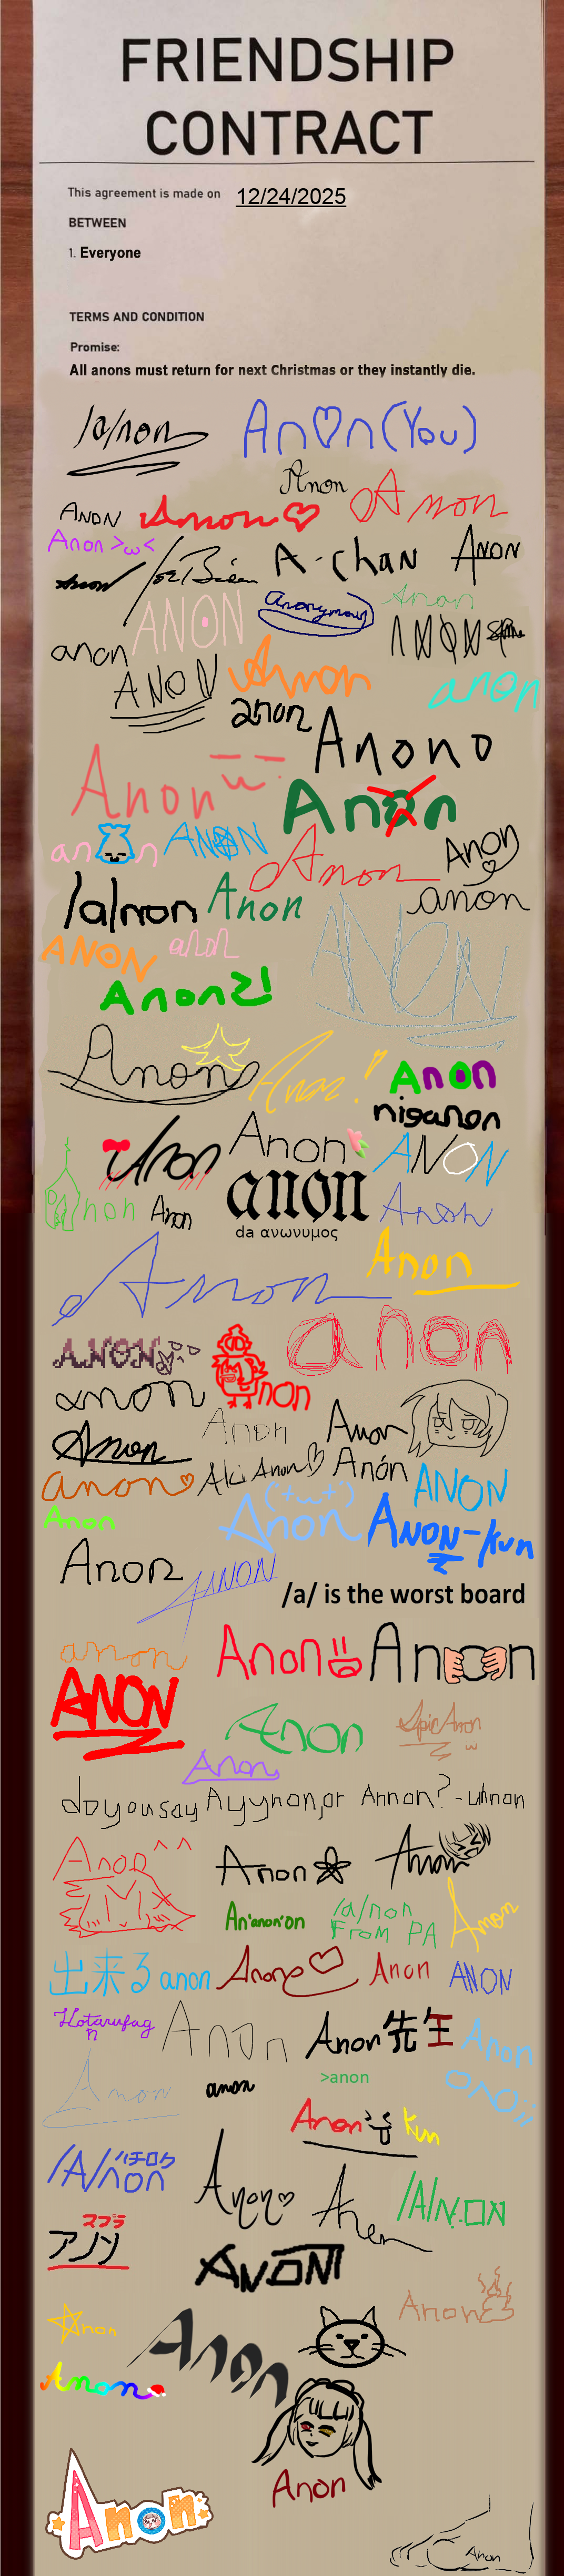 FRIENDSHIP
CONTRACT
This agreement is made on 12/24/2025
BETWEEN
1. Everyone
TERMS AND CONDITION
Promise:
All anons must return for next Christmas or they instantly die.
/a/non
An♡n(You)
Anon
ANON
Anon♡
Anon
Anon >ω<
Anon
Joe Biden
A-chan
ANON
ANON
Anonymous
Anon
anon
ANON
ANON
Anon
anon
anon
Anono
Anon
Anon
anon
ANON
Anon
Anon
/a/non
Anon
anon
ANON
anon
ANON
Anon2!
Anon
Anon!!
Anon
niganon
Anon
Anon
ANON
anon
Anon
Anon
Anon
da ανωνυμος
Anon
Anon
Anon
ANON
non
anon
anon
Anon
Anon
Anon
Aki Anon♡
Anón
anon♡
ANON
Anon
('+ω+')
Anon
ANON-kun
Anon
ANON
/a/ is the worst board
anon
Anon
Anon
ANON
Anon
EpicAnon
ω
Anon
do you say Ayynon, or Annon? - uhnon
Anon^^
Anon
Anon
An'anon'on
/a/non
From PA
Anon
出来る anon
Anon
Anon
ANON
Hotarufag
n
Anon
Anon先生
Anon
Anon
anon
>anon
Anon
kun
/A/non
ハチロク
Anon♡
Anon
/A/N.ON
マブラ
アノン
ANON
Anon
Anon
Anon
Anon
Anon
Anon
Anon